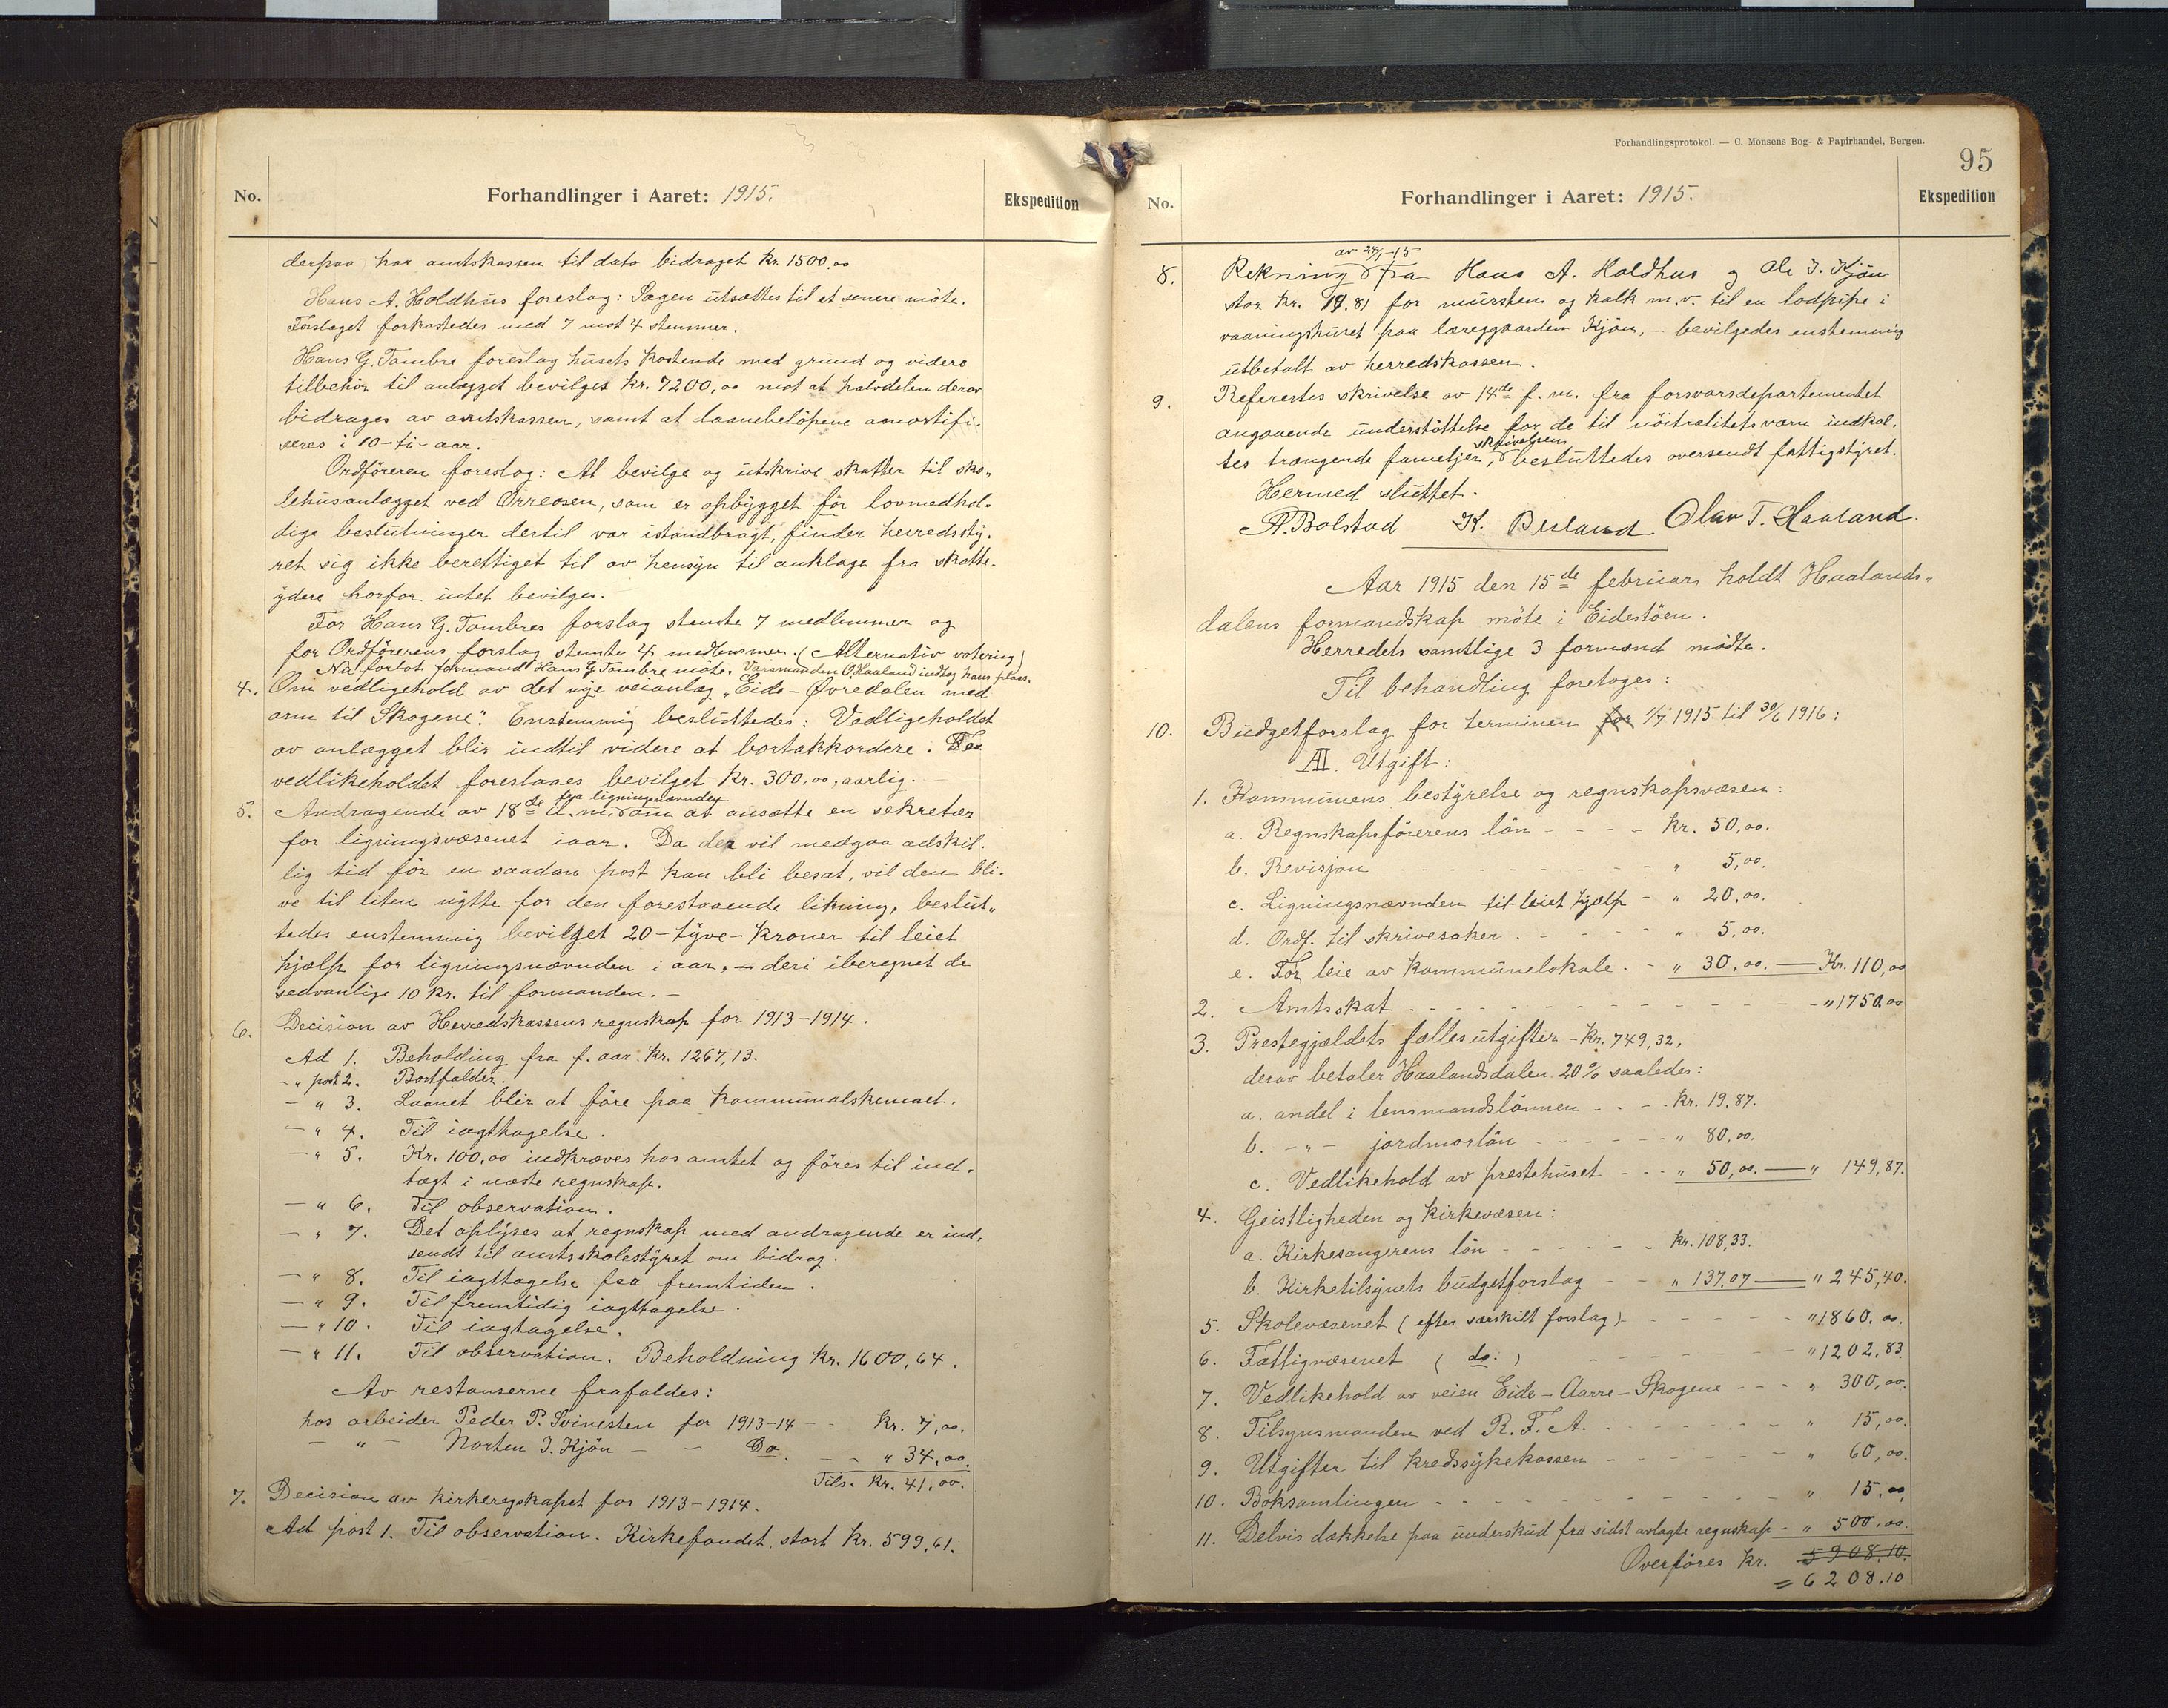 No.
Forhandlinger i Aaret: 1915.
Ekspedition
derpaa har amtskassen til dato bidraget kr. 1500.00
Hans A. Holdhus foreslog: Sagen utsættes til et senere möte.
Forslaget forkastedes med 7 mot 4 stemmer.
Hans G. Tombre foreslog husets kostende med grund og videre
tilbehör til anlægget bevilges kr. 7200,00 mot at halvdelen derav
bidrages av amtskassen, samt at laanebelöpene amortifi-
seres i 10-ti-aar.
Ordföreren foreslog: At bevilge og utskrive skatter til sko-
lehusanlægget ved Örreosen, som er opbygget för lovmedhol-
dige beslutninger dertil var istandbragt, finder herredssty-
ret sig ikke berettiget til av hensyn til anklage fra skatte-
ydere horfor intet bevilges.
For Hans G. Tombres forslag stemte 7 medlemmer og
for Ordförerens forslag stemte 4 medlemmer. (Alternativ votering)
Nu forlot formand Hans G. Tombre möte. Varamanden O. Haaland indtog hans plads.
4. Om vedligehold av det nye veianlæg „Eide-Øvredalen med
arm til Skogene". Enstemmig besluttedes: Vedligeholdet
av anlægget blir indtil videre at bortakkordere. For
vedlikeholdet foreslaaes bevilget kr. 300,00, aarlig.-
5. Andragende av 18de d.m. fra ligningsnævnden om at ansætte en sekretær
for ligningsvæsenet iaar. Da der vil medgaa adskil-
lig tid för en saadan post kan bli besat, vil den bli-
ve til liten nytte for den forestaaende likning, beslut-
tedes enstemmig bevilget 20-tyve-kroner til leiet
hjælp for ligningsnævnden i aar, - deri iberegnet de
sedvanlige 10 kr. til formanden. -
6. Decision av Herredskassens regnskap for 1913-1914.
Ad 1. Beholding fra f. aar kr. 1267,13.
-„ post 2. Bortfalder.
-„ 3. Laanet blir at före paa kommunalskemaet.
-„ 4. Til iagttagelse.
-„ 5. Kr. 100,00 indkræves hos amtet og föres til ind-
tægt i næste regnskap.
-„ 6. Til observation.
-„ 7. Det oplyses at regnskap med andragende er ind-
sendt til amtsskolestyret om bidrag.
-„ 8. Til iagttagelse for fremtiden.
-„ 9. Til fremtidig iagttagelse.
-„ 10. Til iagtagelse.
-„ 11. Til observation. Beholdning kr. 1600,64.
Av restanserne frafaldes:
hos arbeider Peder P. Svinesten for 1913-14 - - kr. 7,00.
- „ - Morten J. Kjön - - Do. - - „ 34,00.
Tils. kr. 41,00.
7. Decision av kirkeregskapet for 1913-1914.
Ad post 1. Til observation. Kirkefondet, stort kr. 599,61.
Forhandlingsprotokol. — C. Monsens Bog- & Papirhandel, Bergen.
95
No.
Forhandlinger i Aaret: 1915.
Ekspedition
8. Rekning av 24/1-15 fra Hans A. Holdhus og Ole J. Kjön
stor kr. 19.81 for mursten og kalk m.v. til en lodpipe i
vaaningshuset paa læreggaarden Kjön, - bevilgedes enstemmig
utbetalt av herredskassen.
9. Refererter skrivelse av 14de f. m. fra forsvarsdepartementet
angaaende understöttelse for de til nöitralitetsværn indkal-
tes trængende familjer, skrivelsen besluttedes oversendt fattigstyret.
Hermed sluttet.
A. Bolstad K. Berland. Olav T. Haaland.
Aar 1915 den 15de februar holdt Haalands-
dalens formandskap möte i Eidestöen.
Herredets samtlige 3 formænd mödte.
Til behandling foretoges:
10. Budgetforslag for terminen for 1/7 1915 til 30/6 1916:
AI. Utgift:
1. Kommunens bestyrelse og regnskapsvæsen:
a. Regnskapsförerens lön - - - - kr. 50,00.
b. Revisjon - - - - - - „ 5,00.
c. Ligningsnævnden til leiet hjælp - „ 20,00.
d. Ordf. til skrivesaker. - - - - „ 5,00.
e. For leie av kommunelokale. - „ 30,00. — Kr. 110,00
2. Amtsskat - - - - - - - - - „ 1750,00
3. Prestegjældets fællesutgifter - Kr. 749,32,
derav betaler Haalandsdalen 20% saaledes:
a. andel i lensmandslönnen - - - kr. 19,87.
b. -„- jordmorlön - - - - - „ 80,00.
c. Vedlikehold av prestehuset - - - „ 50,00. — „ 149,87.
4. Geistligheden og kirkevæsen:
a. Kirkesangerens lön - - - - - kr. 108,33.
b. Kirketilsynets budgetforslag - - „ 137,07 — „ 245,40.
5. Skolevæsenet (efter særskilt forslag) - - - - - „ 1860,00.
6. Fattigvæsenet ( do. ) - - - - - „ 1202,83
7. Vedlikehold av veien Eide-Aarre-Skogene - - - „ 300,00.
8. Tilsynsmanden ved R. F. A. - - - - - „ 15,00.
9. Utgifter til kredssykekassen - - - - - „ 60,00.
10. Boksamlingen - - - - - - - - „ 15,00.
11. Delvis dækkelse paa underskud fra sidst avlagte regnskap - „ 500,00.
Overföres kr. 5908,10.
= 6208.10